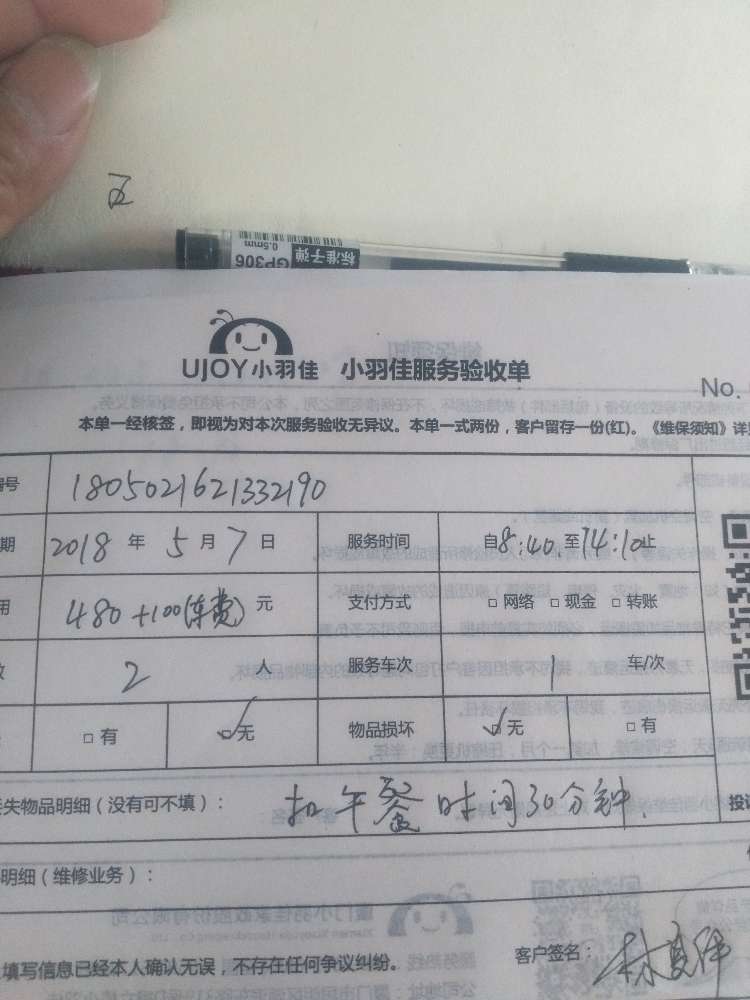 0.5mm
GP306 标准子弹
UJOY小羽佳 小羽佳服务验收单
No.
本单一经核签，即视为对本次服务验收无异议。本单一式两份，客户留存一份(红)。《维保须知》详
号 1805021621332190
期 2018 年 5 月 7 日 服务时间 自8:40至14:10止
用 480+100(车费) 元 支付方式 □ 网络 □ 现金 □ 转账
2 人 服务车次 1 车/次
□ 有 □无 物品损坏 □ 无 □ 有
失物品明细（没有可不填）： 扣午餐时间30个钟. 投
明细（维修业务）：
填写信息已经本人确认无误，不存在任何争议纠纷。 客户签名：